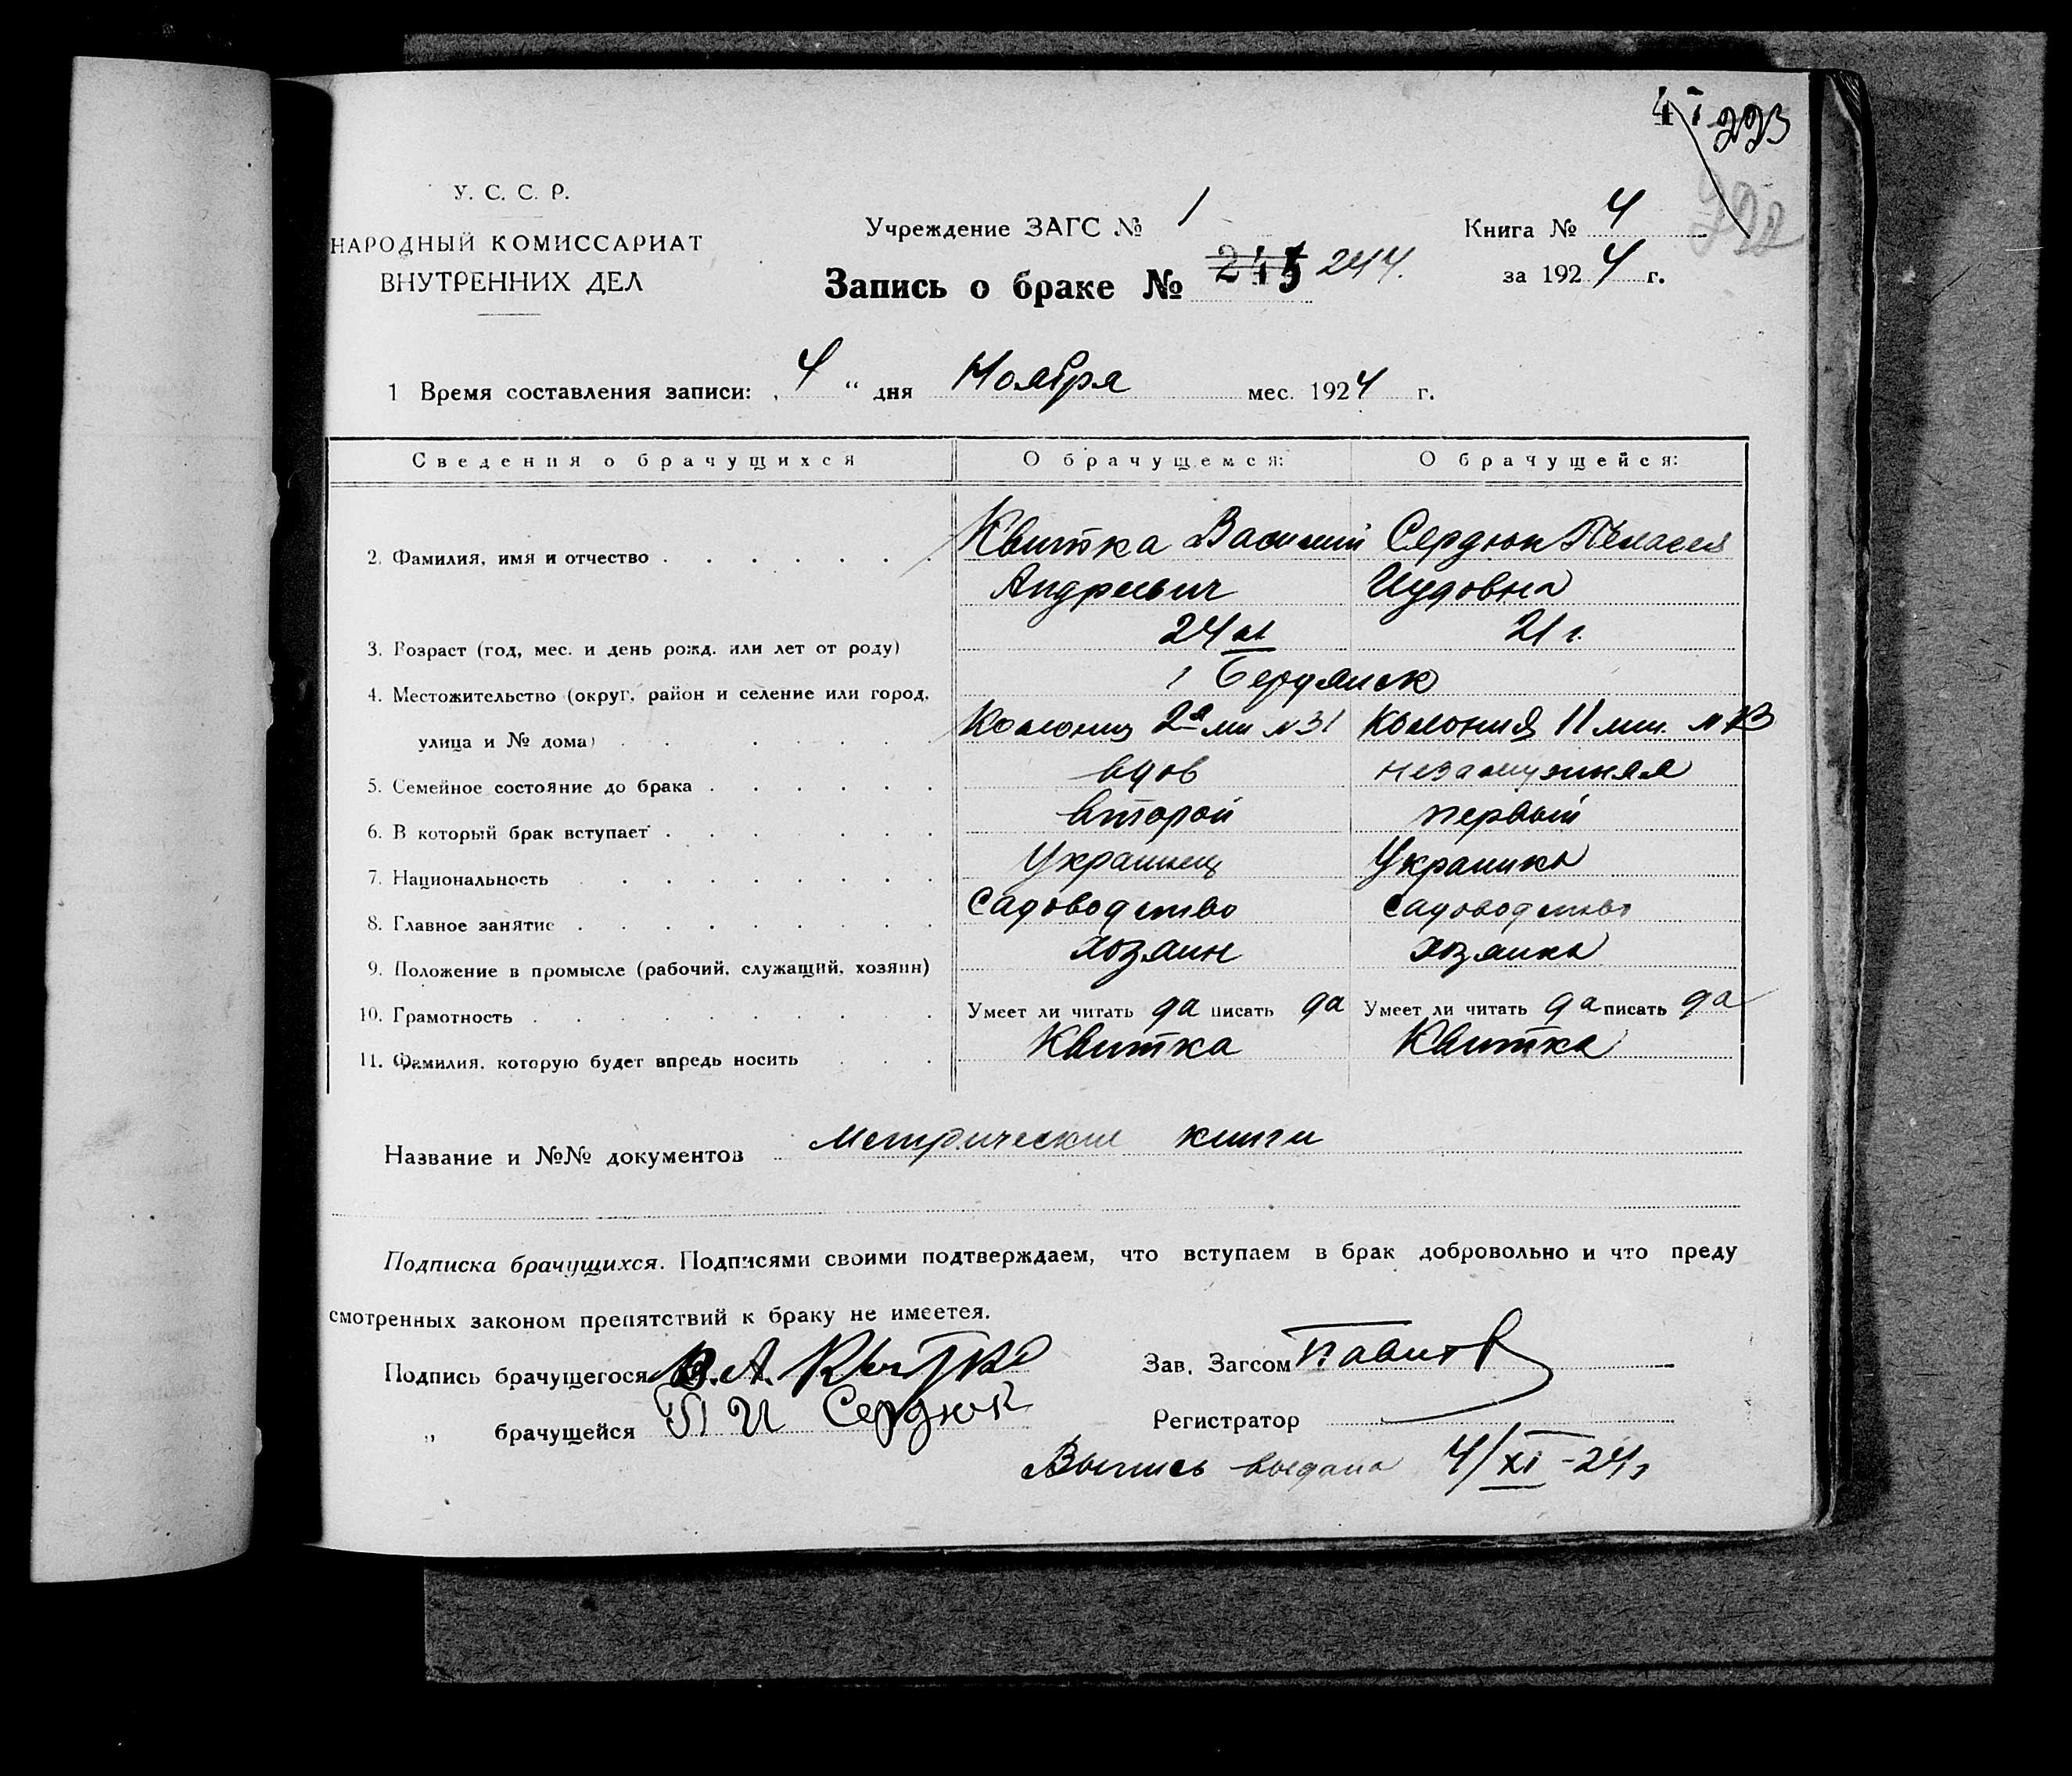 4 223
У. С. С. Р.
222
НАРОДНЫЙ КОМИССАРИАТ
ВНУТРЕННИХ ДЕЛ
Учреждение ЗАГС № 1
Книга № 4
Запись о браке № 245 244.
за 1924 г.
1 Время составления записи: 4 “ дня Ноября мес. 1924 г.
Сведения о брачущихся О брачущемся: О брачущейся:
2. Фамилия, имя и отчество Квитка Василий Сердюк Пелагея
Андреевич Иудовна
3. Возраст (год, мес. и день рожд. или лет от роду) 24 21 г.
4. Местожительство (округ, район и селение или город, Бердянск
улица и № дома) Колония 2я №31 Колония 11 №
5. Семейное состояние до брака вдов незамужняя
6. В который брак вступает второй первый
7. Национальность Украинец Украинка
8. Главное занятие Садоводство садоводство
9. Положение в промысле (рабочий, служащий, хозяин) хозяин хозяйка
10. Грамотность Умеет ли читать да писать да Умеет ли читать да писать да
11. Фамилия, которую будет впредь носить Квитка Квитка
Название и №№ документов Метрические книги
Подписка брачущихся. Подписями своими подтверждаем, что вступаем в брак добровольно и что преду
смотренных законом препятствий к браку не имеется.
Подпись брачущегося В.А. Квитка Зав. Загсом
„ брачущейся П И Сердюк Регистратор
Выпись выдана 4/XI-24г